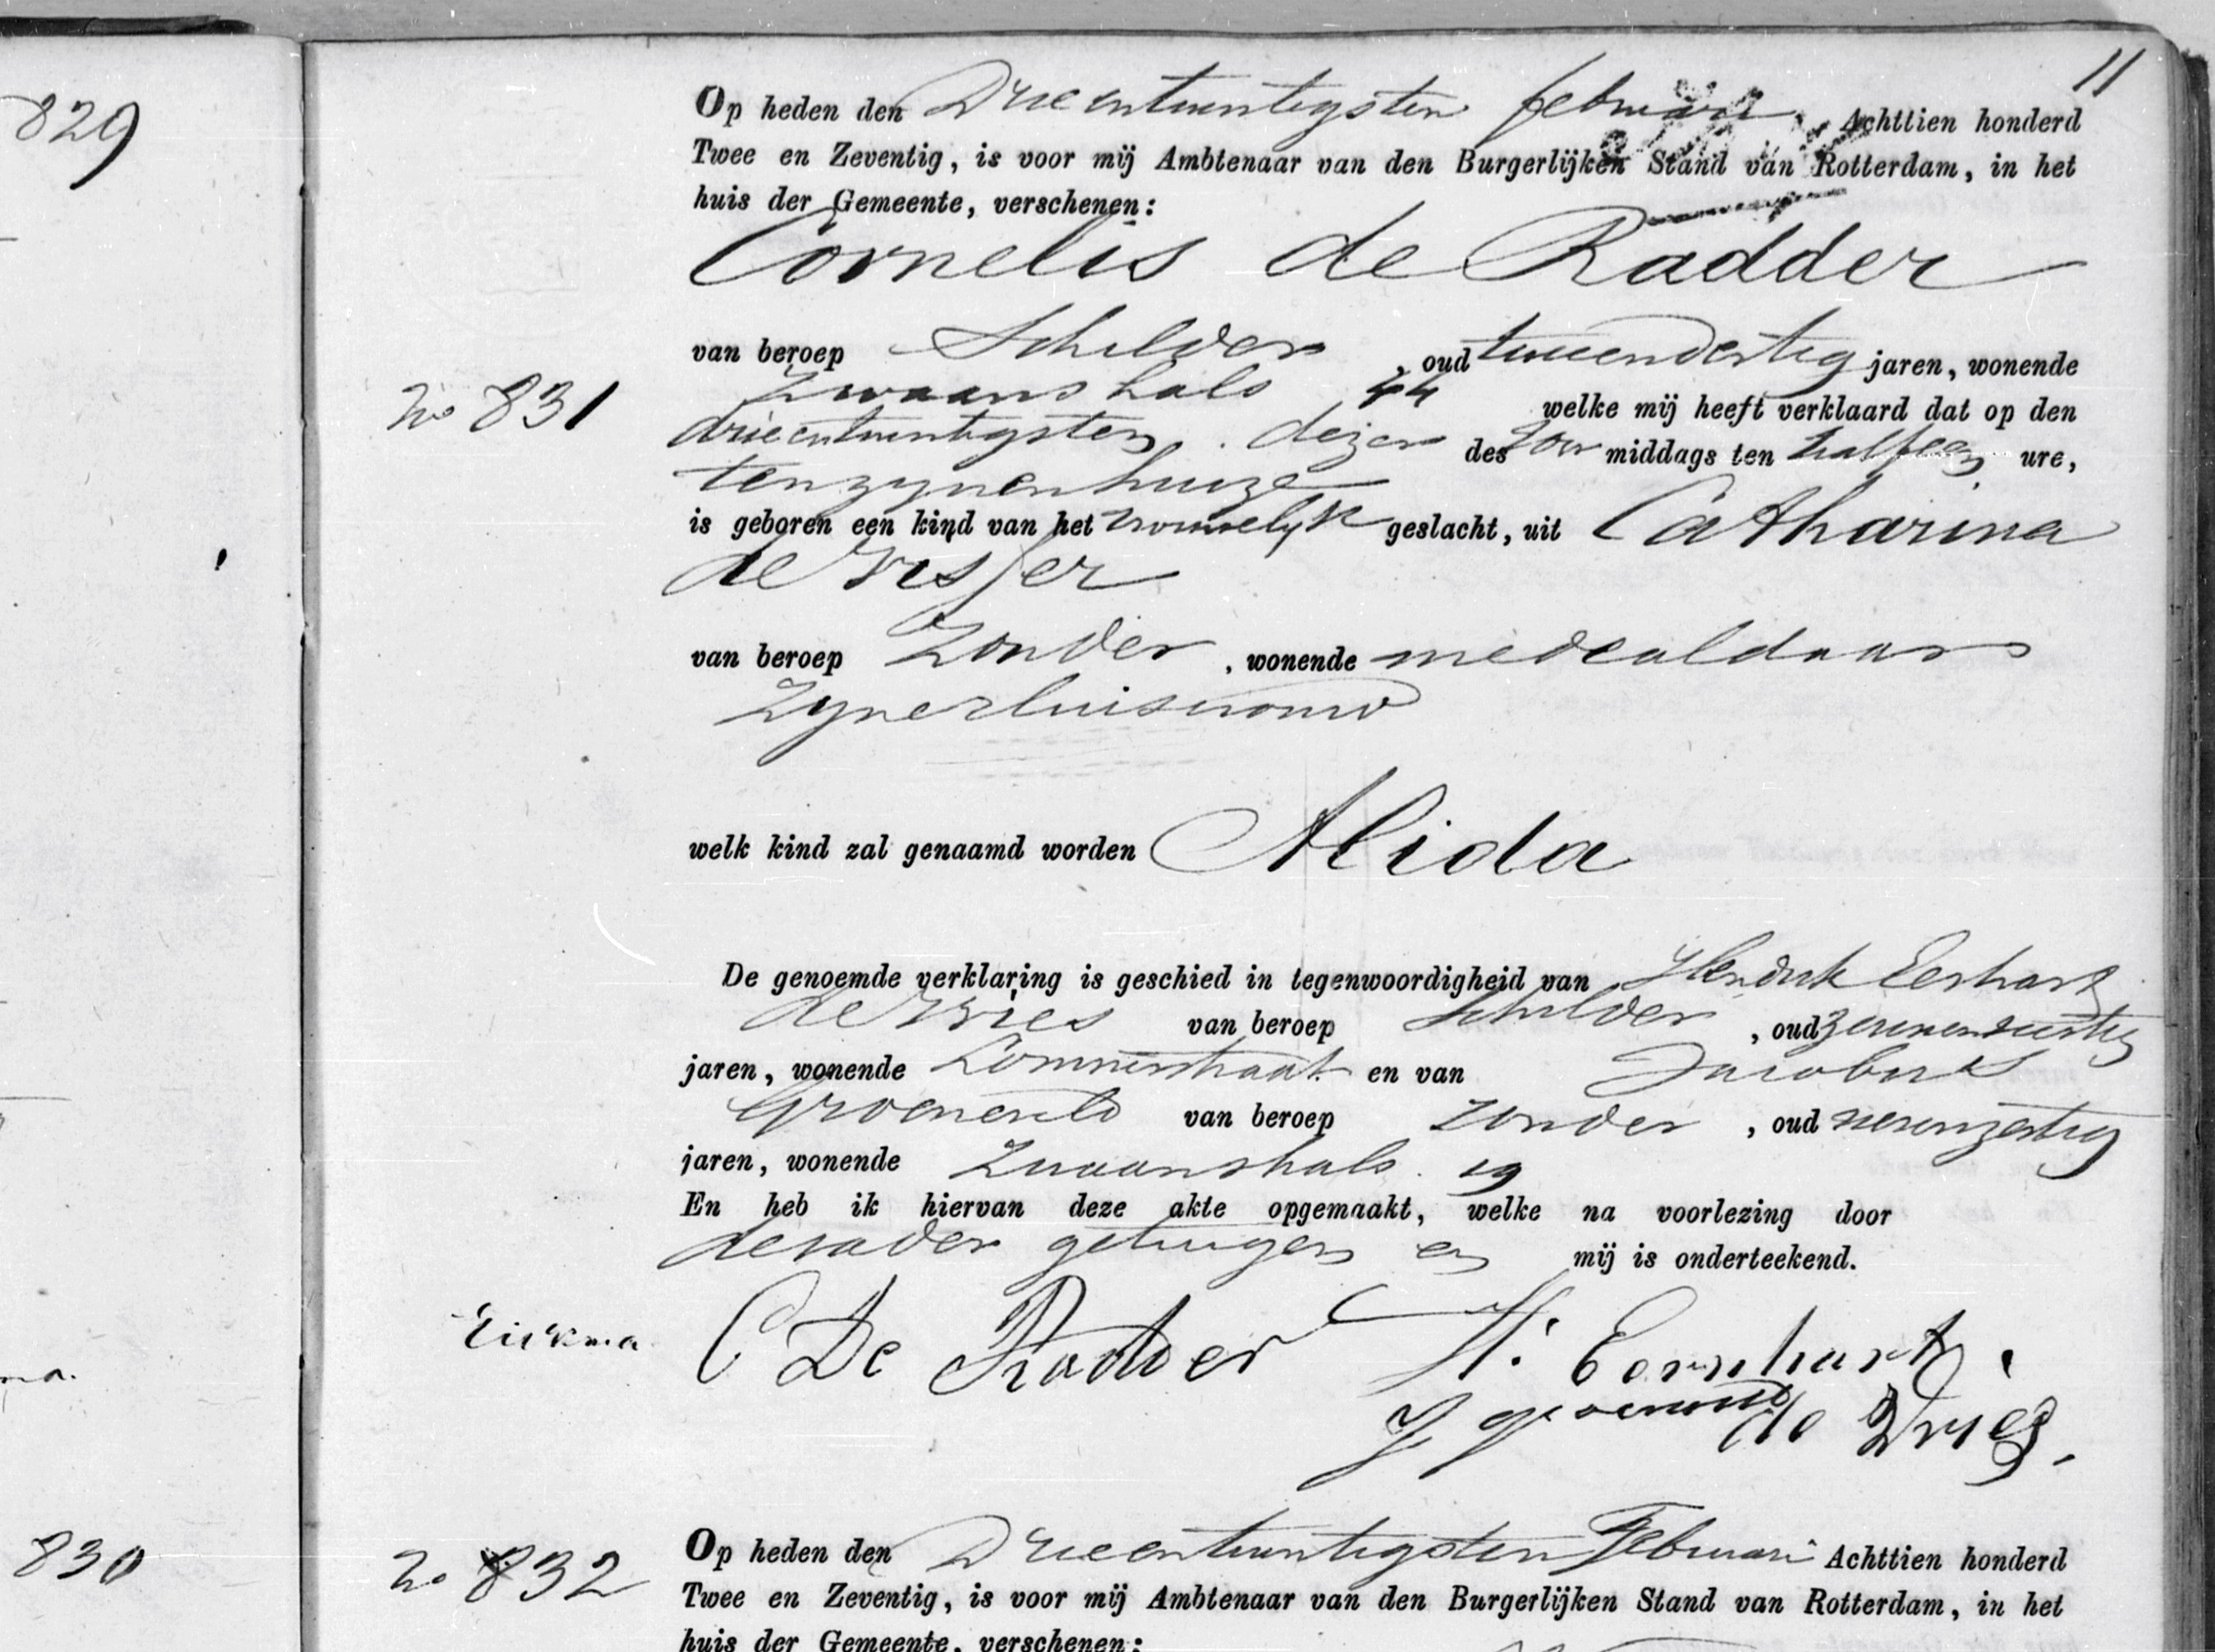 829
11
Op heden den Drieentwintigsten februari Achttien honderd
Twee en Zeventig, is voor mij Ambtenaar van den Burgerlijken Stand van Rotterdam, in het
huis der Gemeente, verschenen:
Cornelis de Radder
van beroep Schilder, oud tweeendertig jaren, wonende
No 831
Zwaanshals 44 welke mij heeft verklaard dat op den
drieentwintigsten dezer des voor middags ten half een ure,
ten zynen huize
is geboren een kind van het vrouwelyk geslacht, uit Catharina
de Visser
van beroep Zonder, wonende mede aldaar
Zyne huisvrouw
welk kind zal genaamd worden Alida
De genoemde verklaring is geschied in tegenwoordigheid van Hendrik Eerhart
de Vries van beroep Schilder, oud
jaren, wonende en van Jacobus
Groeneveld van beroep zonder, oud negenzestig
jaren, wonende Zwaanshals 19
En heb ik hiervan deze akte opgemaakt, welke na voorlezing door
de vader getuigen en mij is onderteekend.
C De Radder H. Eernhart
J groeneveld de Vries.
830
No 832
Op heden den Drieentwintigsten Februari Achttien honderd
Twee en Zeventig, is voor mij Ambtenaar van den Burgerlijken Stand van Rotterdam, in het
huis der Gemeente, verschenen: